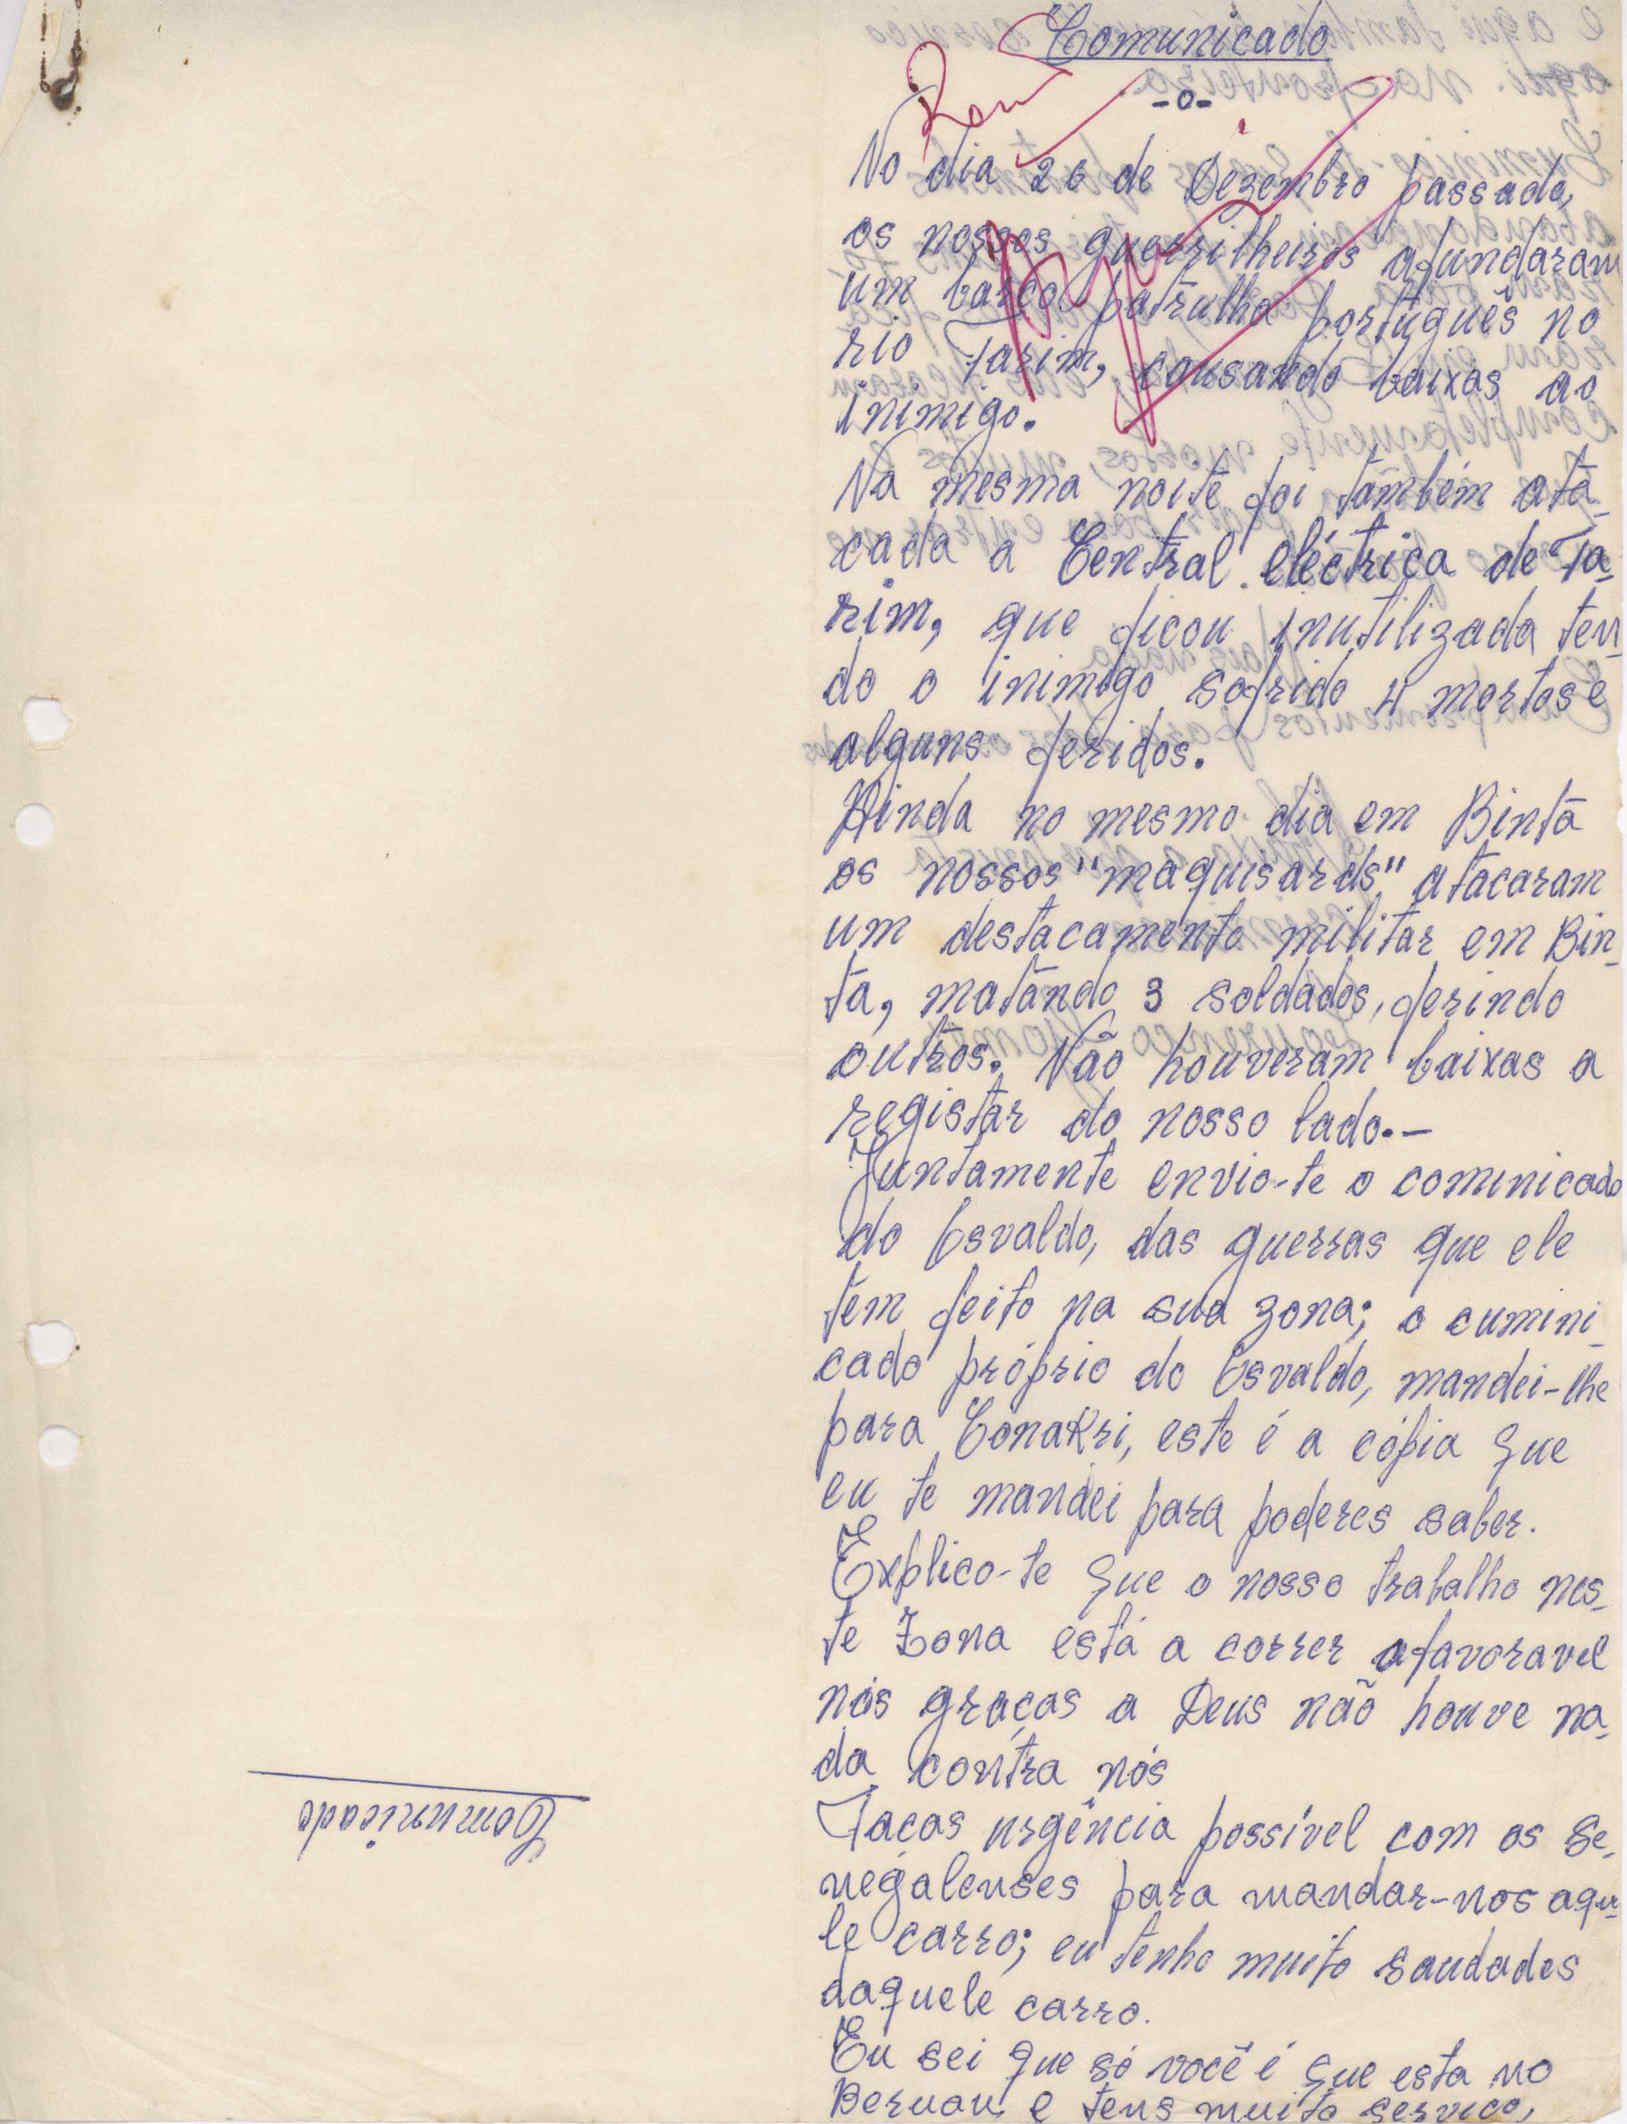 Comunicado
-o-
No dia 26 de Dezembro passado,
os nossos guerrilheiros afundaram
um barco patrulha português no
rio Farim, causando baixas ao
inimigo.
Na mesma noite foi também ata-
cada a Central eléctrica de Fa-
rim, que ficou inutilizada ten-
do o inimigo sofrido 4 mortos e
alguns feridos.
Ainda no mesmo dia em Binta
os nossos "maquisards" atacaram
um destacamento militar em Bin-
ta, matando 3 soldados, ferindo
outros. Não houveram baixas a
registar do nosso lado.-
Juntamente envio-te o cominicado
do Osvaldo, das guerras que ele
tem feito na sua zona; o cumini-
cado próprio do Osvaldo, mandei-lhe
para Conakri, este é a cópia que
eu te mandei para poderes saber.
Explico-te que o nosso trabalho nes-
te Zona está a correr afavoravel
nós graças a Deus não houve na-
da contra nós
Faças urgência possível com os Se-
negalenses para mandar-nos aque-
le carro; eu tenho muito saudades
daquele carro.
Eu sei que só você é que esta no
e tens muito serviço,
Comunicado